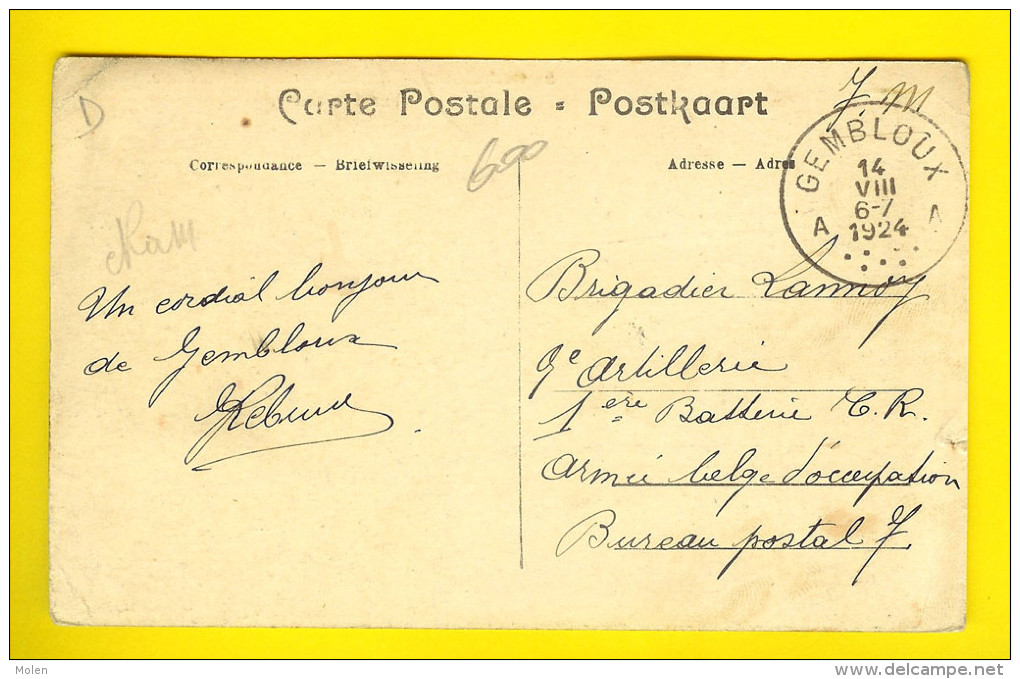 F. M
Carte Postale = Postkaart
D
GEMBLOUX
14
VIII
6-7
1924
A A
Correspondance — Briefwisseling
600
Adresse — Adres
Un cordial bonjour
de Gembloux
Brigadier Lannoy
7e Artillerie
1ere Batterie T.R.
Armée belge d'occupation
Bureau postal 7
Molen
www.delcampe.net